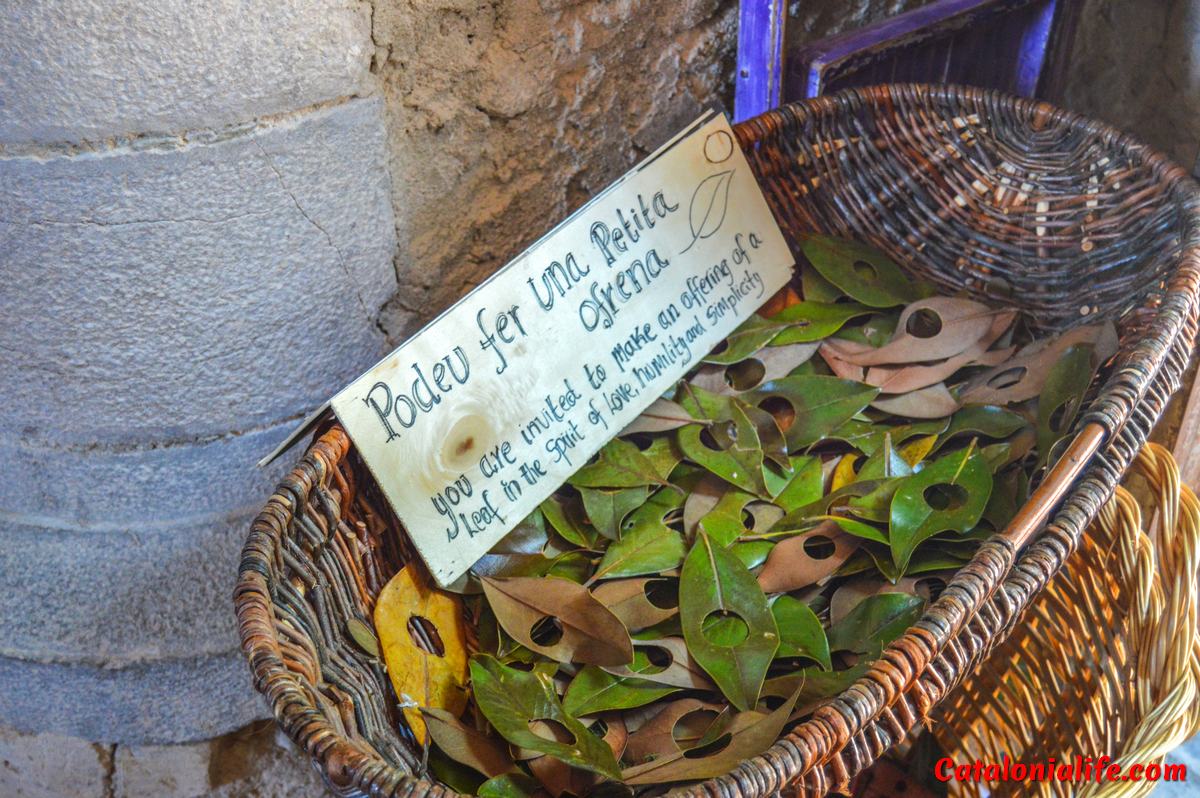 Podeu fer Una Petita
Ofrena
you are invited to make an offering of a
Leaf in the Spirit of Love, humility and Simplicity
Catalonialife.com